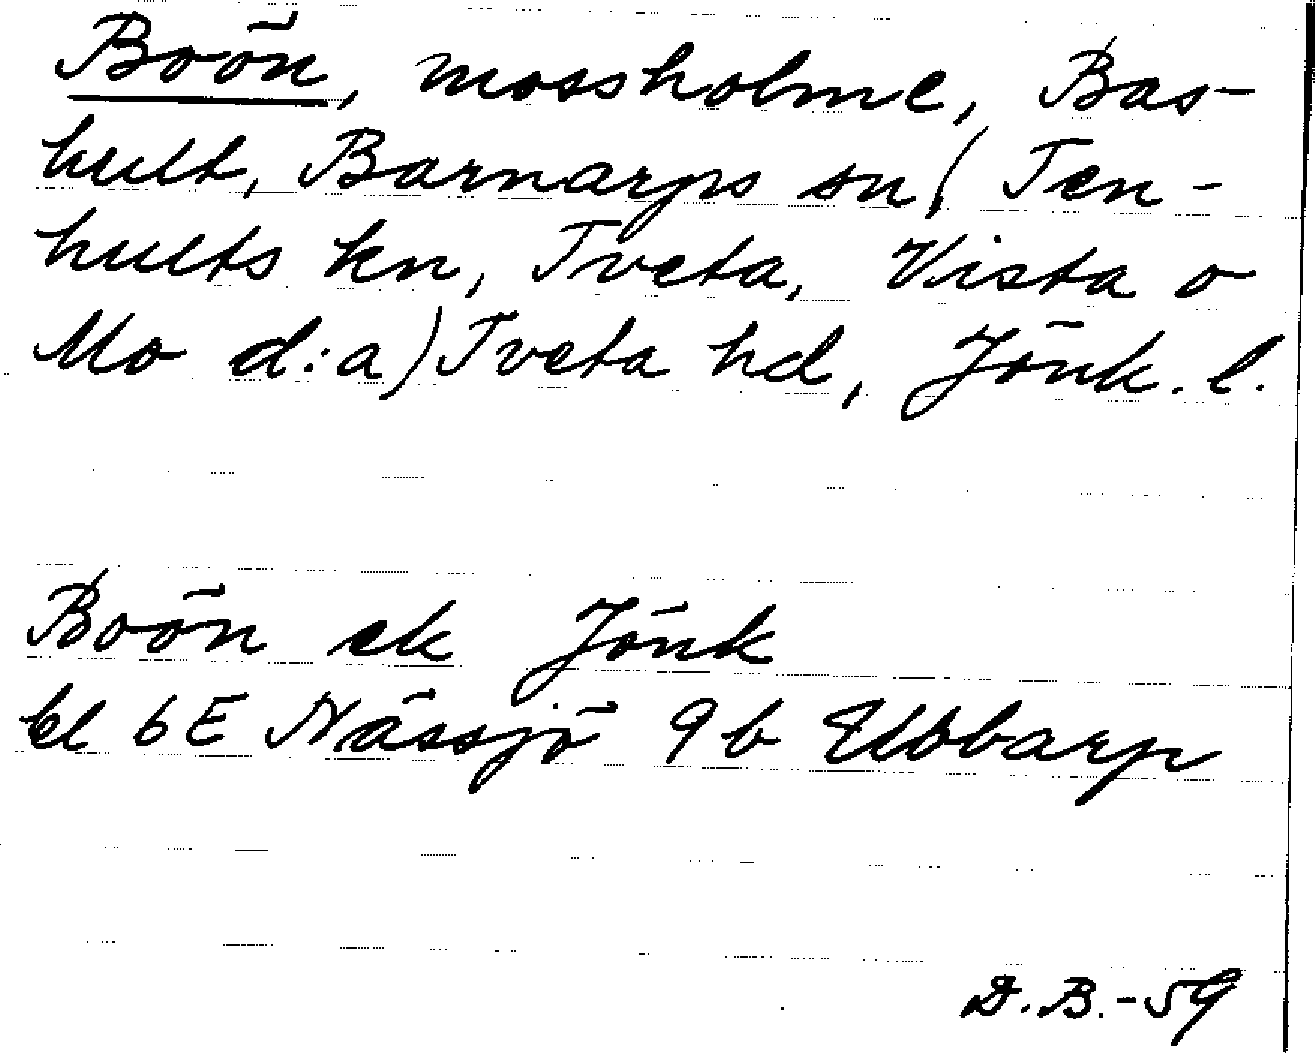 Boön, mossholme, Bas-
hult, Barnarps sn (Ten-
hults kn, Tveta, Vista o
Mo d:a) Tveta hd, Jönk. l.
Boön ek Jönk
bl 6E Nässjö 9b Ubbarp
D.B.-59